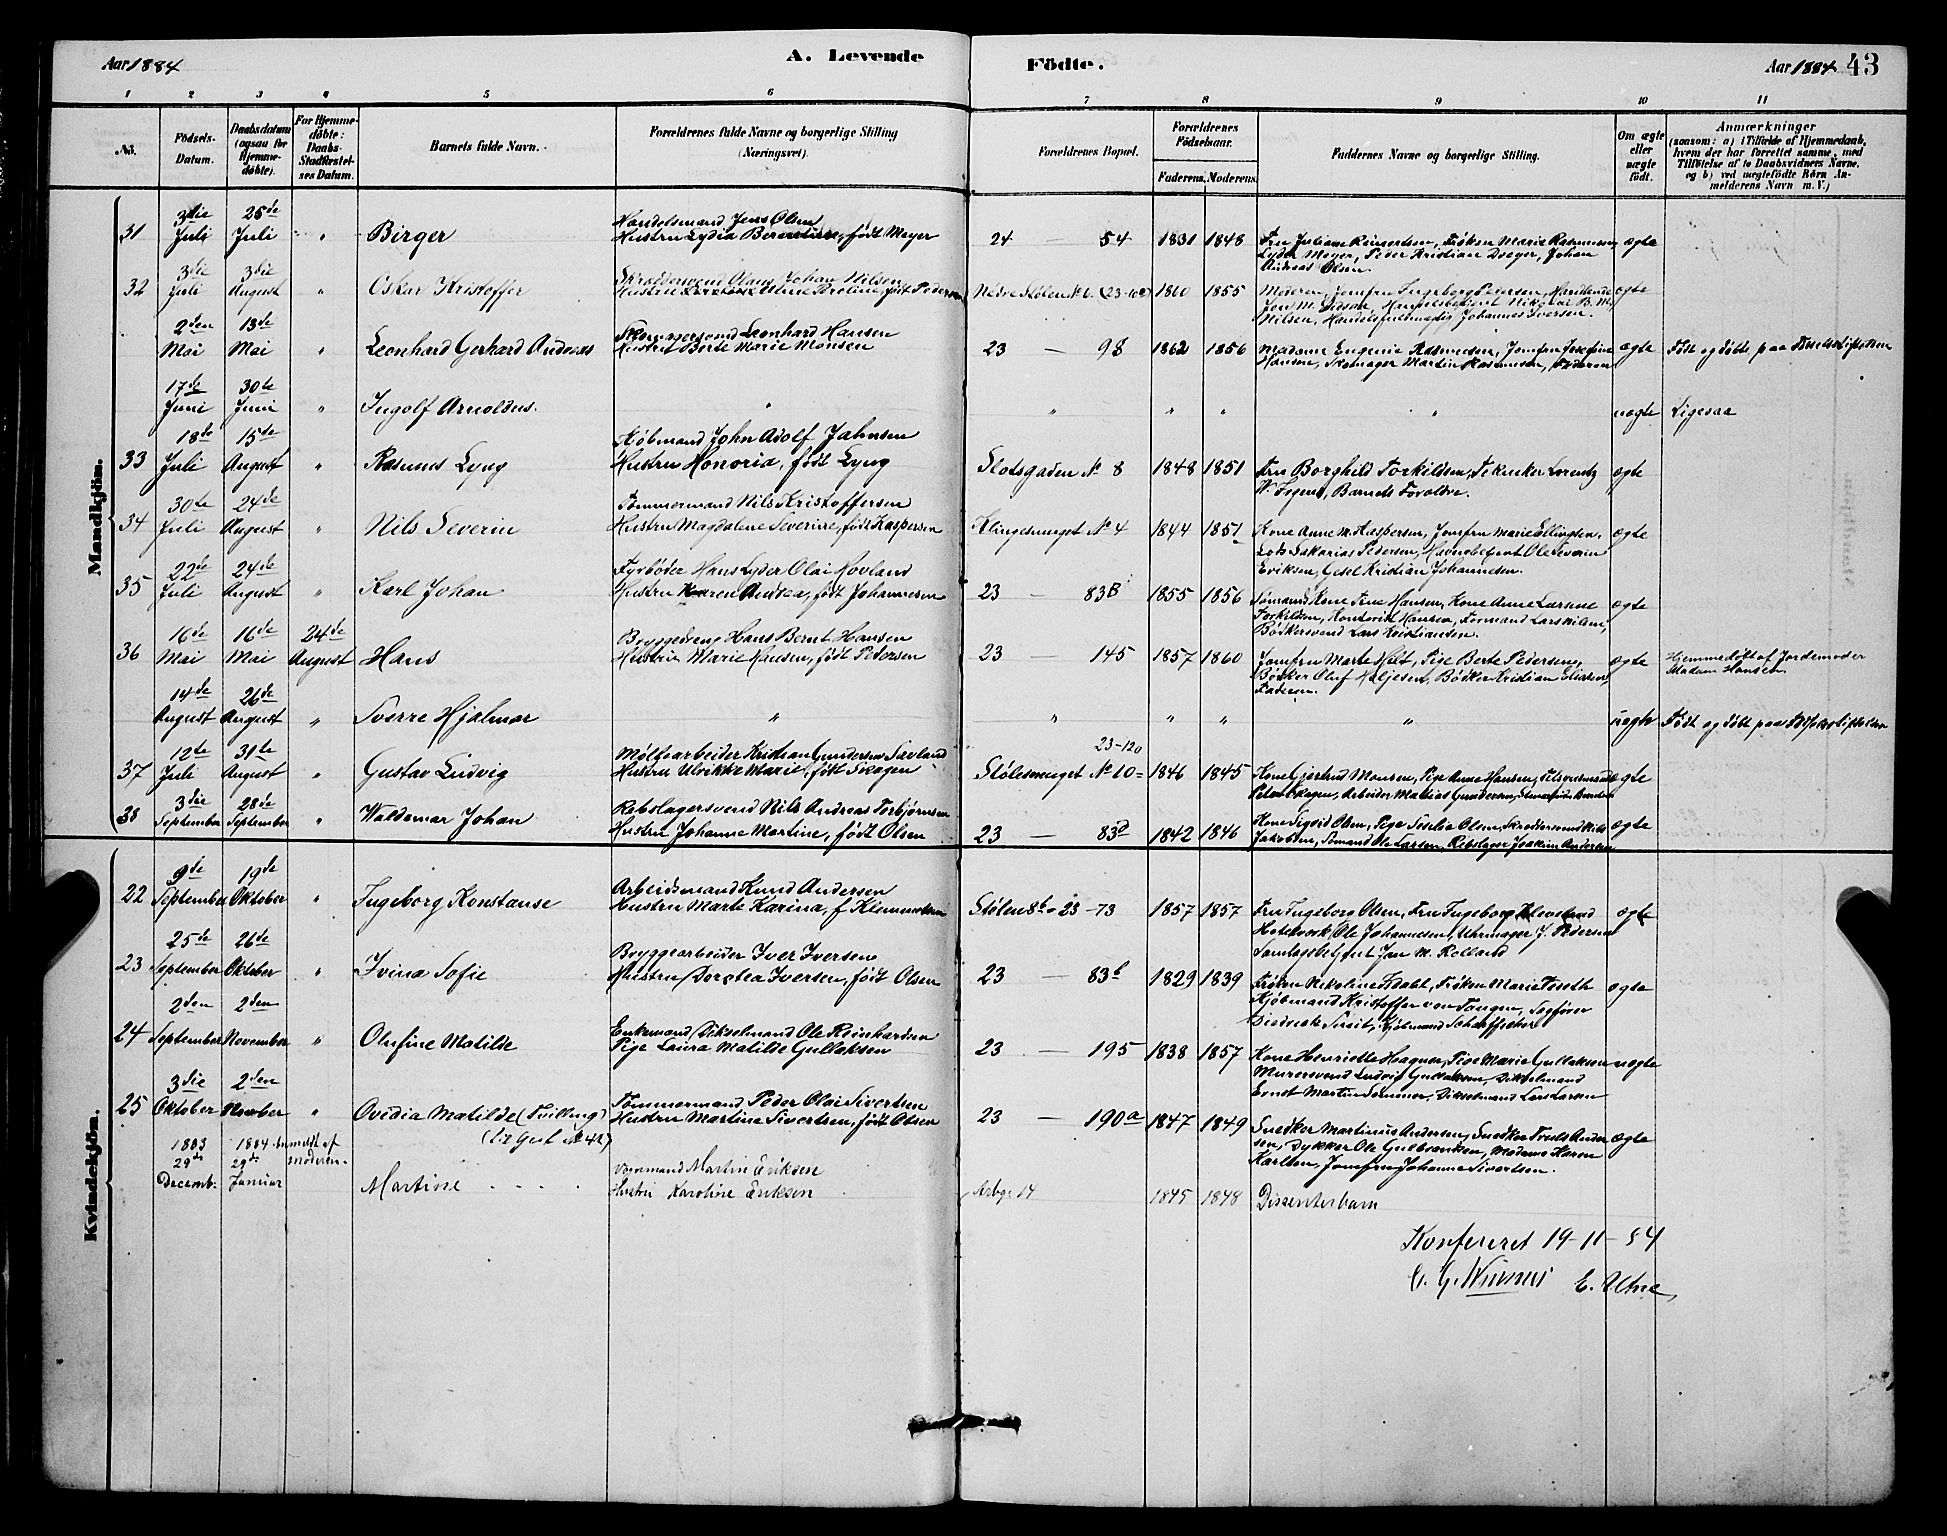 Aar 1884
A. Levende
Födte.
Aar 1884
43
1 2 3 4 5 6 7 8 9 10 11
No.
Födsels-Datum.
Daabsdatum (ogsaa for Hjemme-døbte).
For Hjemme-døbte: Daabs-Stadfæstel-ses Datum.
Barnets fulde Navn.
Forældrenes fulde Navne og borgerlige Stilling
(Næringsvei).
Forældrenes Bopæl.
Forældrenes Fødselsaar.
Faderens. Moderens.
Faddernes Navne og borgerlige Stilling.
Om ægte eller uægte født.
Anmærkninger
(saasom: a) i Tilfælde af Hjemmedaab,
hvem der har forrettet samme, med
Tilföielse af to Daabsvidners Navne,
og b) ved uægtefödte Börn An-
melderens Navn m. V.)
Mandkjön.
31 3die Juli 25de Juli " Birger
Handelsmand Jens Olsen
Hustru Lydia Berentine, født Meyer
24 — 54 1831 1848
Fru Juliane Reinertsen, Frøken Marie Rasmussen
Lyder Meyer, Peder Kristian Dreyer, Johan
Andreas Olsen.
ægte
32 3die Juli 3die August " Oskar Kristoffer
Skræddersvend Olaus Johan Nilsen
født Pedersen
Nedre Stølen No 6. (23-102) 1860 1855
Moderen, Jomfru Ingeborg Pedersen,
Nilsen, Handelsfuldmægtig Johannes Iversen.
ægte
2den Mai 13de Mai " Leonhard Gerhard Andreas
Skomagersvend Leonhard Hansen
Hustru Berte Marie Monsen
23 — 98 1862 1856
Madame Engenie Rasmussen, Jomfru Josefine
Hansen, Skomager Martin Rasmussen, Faderen
ægte
Født og døbt paa Fødselsstiftelsen
17de Juni 30te Juni " Ingolf Arnoldus.
" " " " "
uægte Ligesaa
33 18de Juli 15de August " Rasmus Lyng
Kjøbmand John Adolf Jahnsen
Hustru Honoria, født Lyng
Slotsgaden No 8 1848 1851
Fru Borghild Torkildsen, Lorentz
W. Barnets Forældre.
ægte
34 30te Juli 24de August " Nils Severin
Tømmermand Nils Kristoffersen
Hustru Magdalene Severine, født Kaspersen
Klingesmuget No 4 1844 1851
Kone Anne M. Kaspersen, Jomfru Marie Ellingsen,
Lods Sakarias Pedersen, Havnebetjent Ole Severin
Eriksen, Gesel Kristian Johannesen.
ægte
35 22de Juli 24de August " Karl Johan
Fyrbøder Hans Lyder Olai Hovland
Hustru Karen Andrea, født Johannesen
23 — 83B 1855 1856
Sømands Kone Hansen, Kone Anne Larsine
Torkildsen, Hansen, Formand Lars Nilsen,
Bødkersvend Lars Kristiansen.
ægte
36 16de Mai 16de Mai 24de August Hans
Bryggedreng Hans Bernt Hansen
Hustru Marie Hansen, født Pedersen
23 — 145 1857 1860
Jomfru Marte Hilt, Pige Berte Pedersen,
Bødker Oluf Heljesen, Bødker Kristian
Faderen.
ægte
Hjemmedøbt af Jordemoder
Madam Hansen.
14de August 26de August " Sverre Hjalmar
" " " " "
uægte Født og døbt paa Fødselsstiftelsen
37 12te Juli 31te August " Gustav Ludvig
Mølfearbeider Kristian Gundersen Søvland
Hustru Ulrikke Marie, født Skagen
23-120
Stølesmuget No 10= 1846 1845
Kone Gjertrud Monsen, Pige Anne Hansen,
Peter Skagen, Arbeider Mathias Gundersen,
ægte
38 3die September 28de September " Waldemar Johan
Rebslagersvend Nils Andreas Torbjørnsen
Hustru Johanne Martine, født Olsen
23 — 83d 1842 1846
Kone Sigvid Olsen, Pige Seselie Olsen, Skræddersvend Nils
Jakobsen, Sømand Ole Larsen, Rebslager Joakim Andersen
ægte
Kvindekjön.
22 9de September 19de Oktober " Ingeborg Konstanse
Arbeidsmand Knud Andersen
Hustru Marte Karina, f. Klemmetsen
Stølen 8b - 23 -73 1857 1857
Fru Ingeborg Olsen, Fru Ingeborg Kleveland
Ole Johannesen, Uhrmager J. Pedersen
Jan M. Rolland
ægte
23 25de September 26de Oktober " Ivina Sofie
Bryggearbeider Iver Iversen
Hustru Dorotea Iversen, født Olsen
23 — 83b 1829 1839
Frøken Nikoline Frøken Marie
Kjøbmand Kristoffer von Tangen, Sagfører
Kjøbmand
ægte
24 2den September 2den November " Olufine Matilde
Enkemand Dikselmand Ole Reinhardsen
Pige Laura Matilde Gullaksen
23 — 195 1838 1857
Kone Henriette Hagnes, Pige Marie Gullaksen
Murersvend Ludvig Gullaksen, Dikselmand
Ernst Martin Sommer, Dikselmand Lars Larsen
uægte
25 3die Oktober 2den November " Ovidia Matilde (Tvilling)
Tømmermand Peder Olai Sivertsen
Hustru Martine Sivertsen, født Olsen
23 — 190a 1847 1849
Snedker Martinus Andersen, Snedker Truls Ander
sen, Dykker Ole Gulbranksen, Madame Karen
Karlsen, Jomfru Johanne Sivertsen.
ægte
1883 29de Decemb. 1884 29de Januar anmeldt af Moderen.
Martine
Formand Martin Eriksen
Hustru Karoline Eriksen
Arbg. 14 1845 1848 Dissenterbarn
Konfereret 19-11-84
E. Utne,